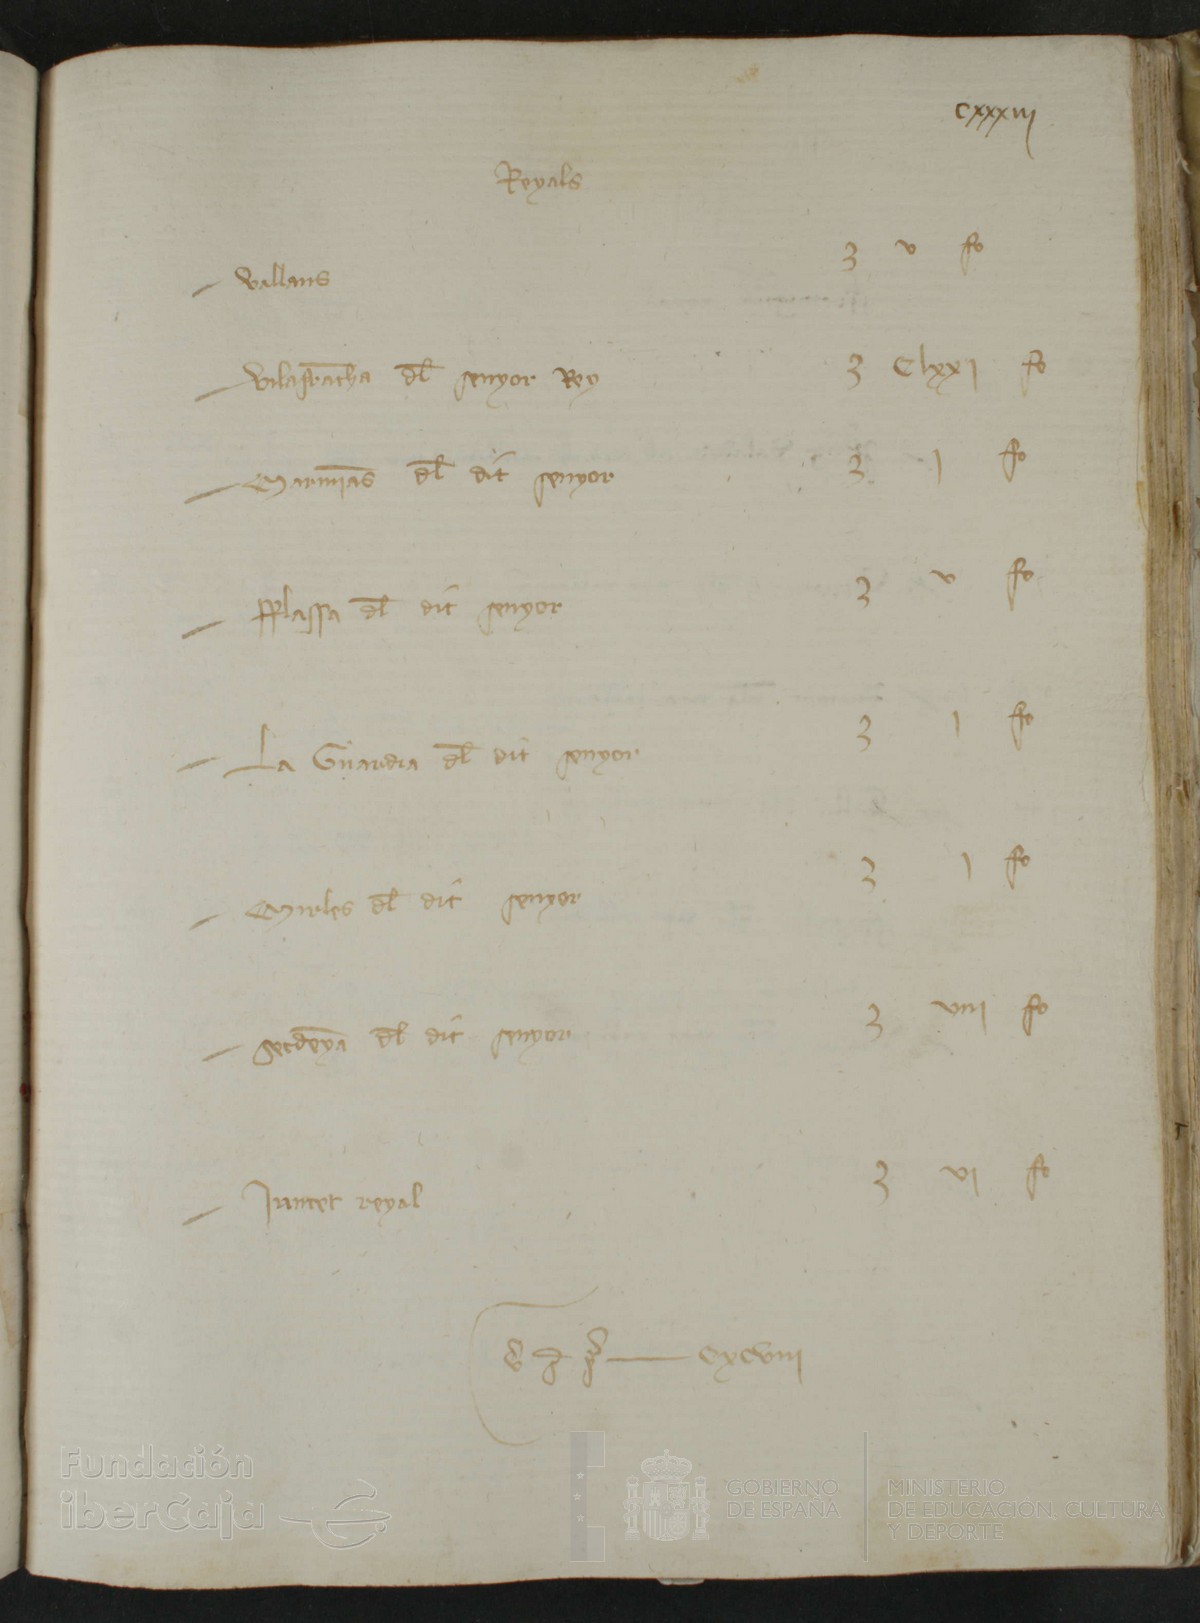 Cxxxiij
Reyals
Villans ʒ v fo
Vilafrācha dl senyor Rey ʒ Clxxj fo
Marmiās dl dit senyor ʒ j fo
Plassa dl dit senyor ʒ v fo
La Guardia dl dit senyor ʒ j fo
Mirles dl dit senyor ʒ j fo
secdeyā dl dit senyor ʒ viij fo
Juncet reyal ʒ vj fo
Cxcviij
Fundación
iberCaja
GOBIERNO
DE ESPAÑA
MINISTERIO
DE EDUCACIÓN, CULTURA
Y DEPORTE